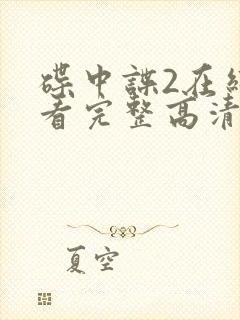 碟中諜2在纟
看完整高清
夏空